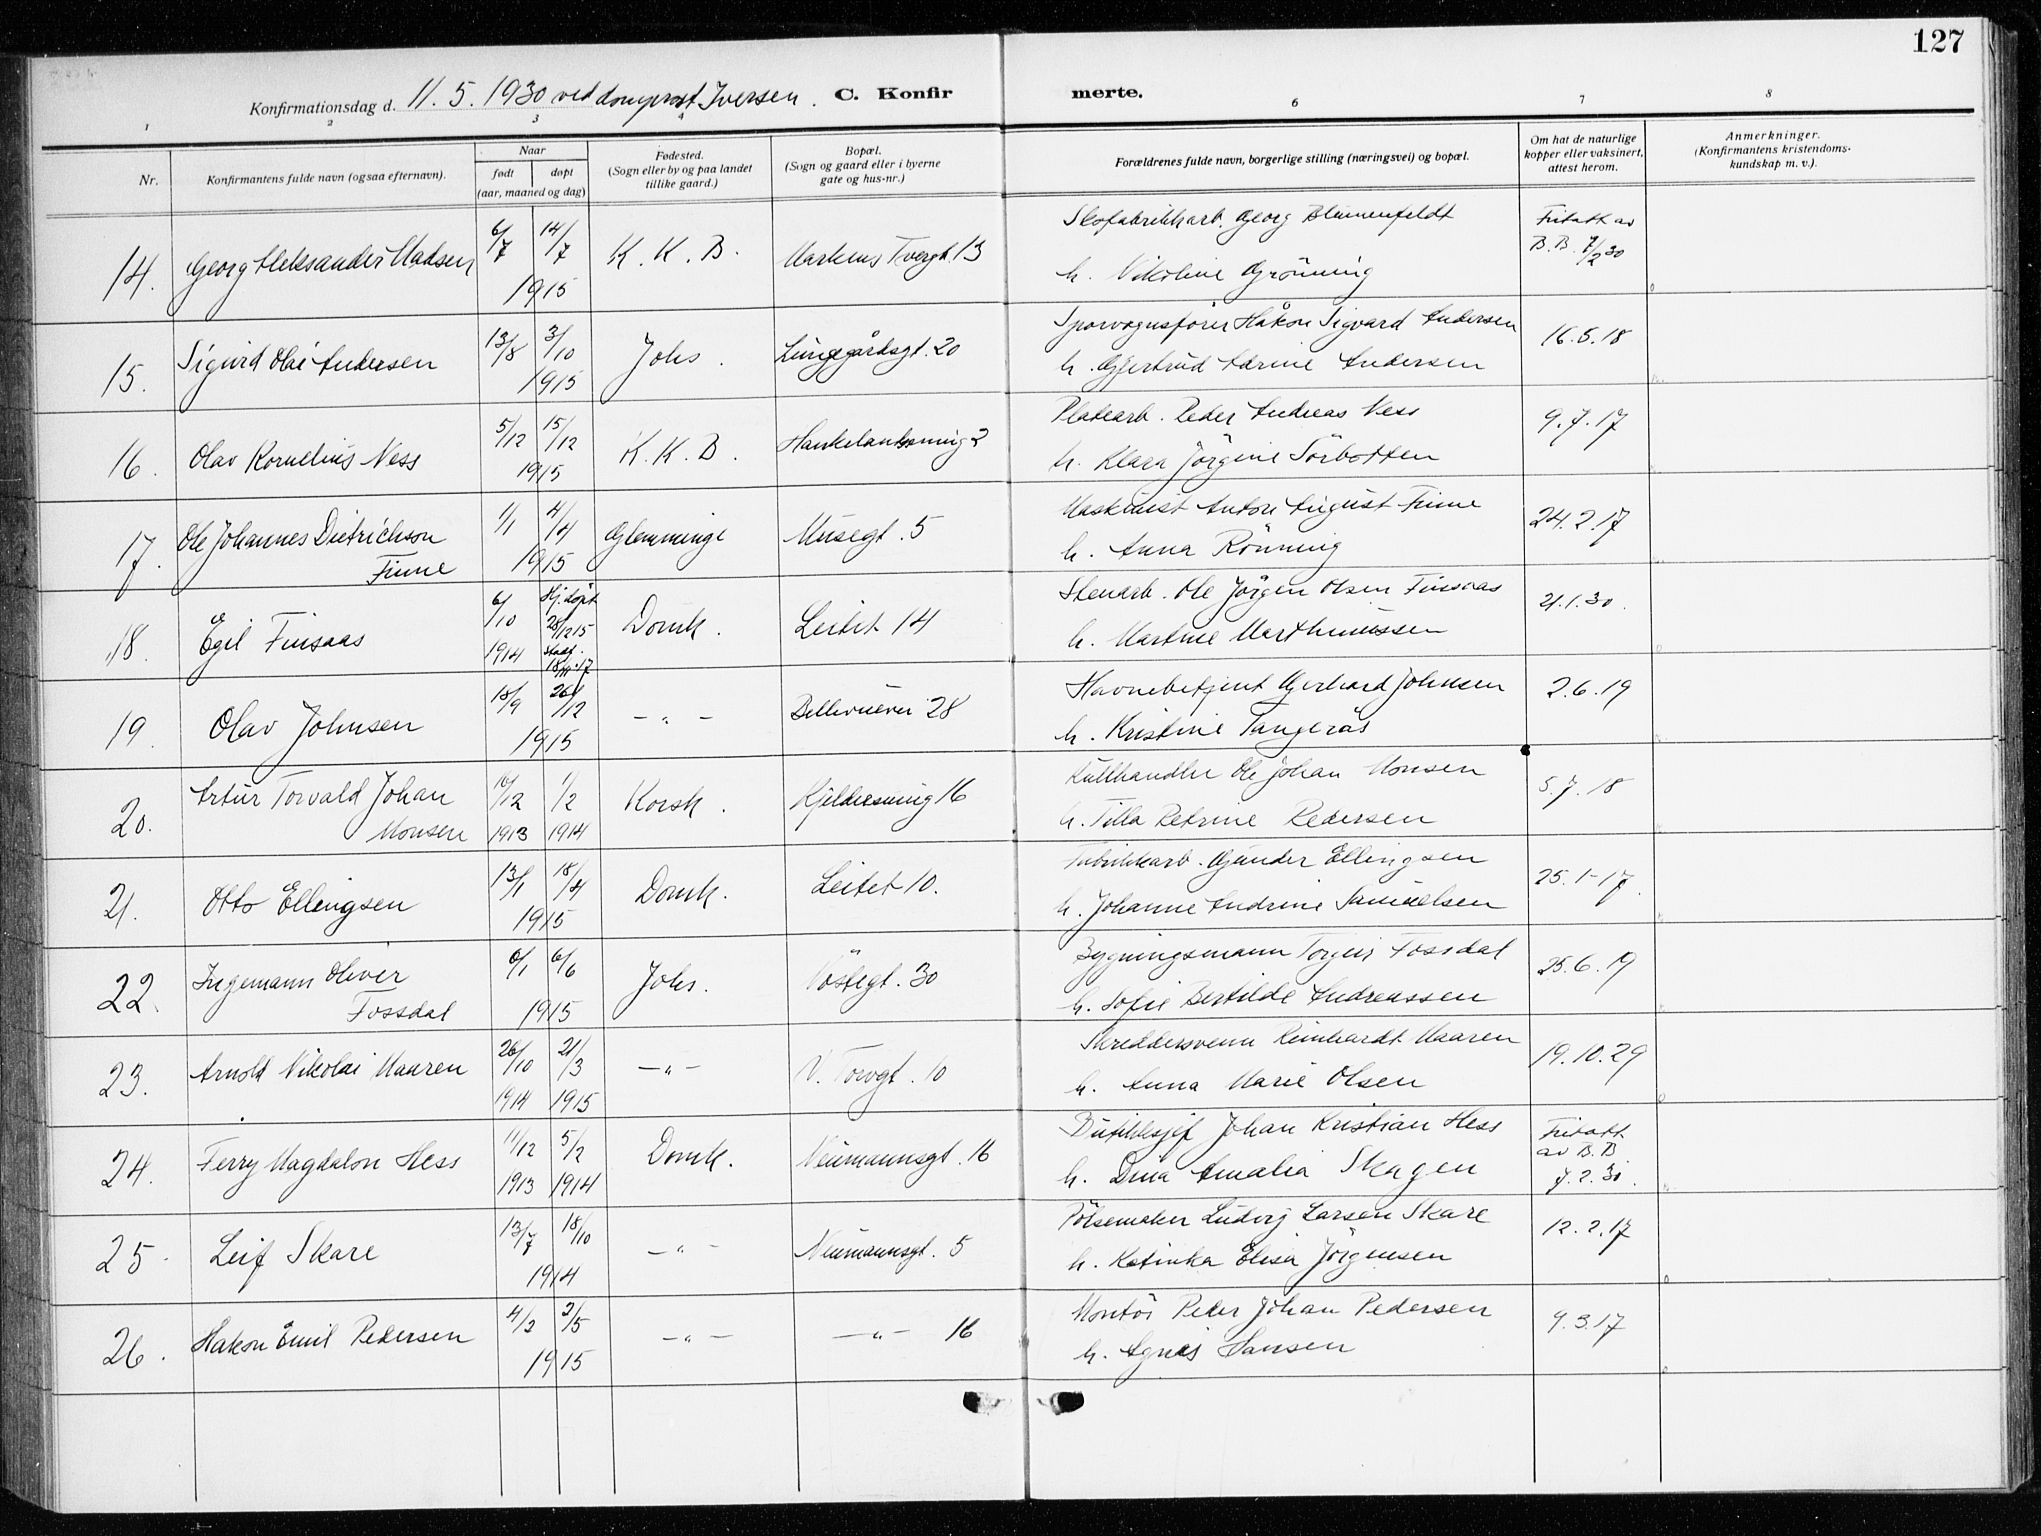 127
Konfirmationsdag d. 11. 5. 1930 ved domprost Iversen. C. Konfirmerte.
1 2 3 4 6 7 8
Nr.
Konfirmantens fulde navn (ogsaa efternavn).
Naar
født døpt
(aar, maaned og dag)
Fødested.
(Sogn eller by og paa landet
tillike gaard.)
Bopæl.
(Sogn og gaard eller i byerne
gate og hus-nr.)
Forældrenes fulde navn, borgerlige stilling (næringsvei) og bopæl.
Om hat de naturlige
kopper eller vaksinert,
attest herom.
Anmerkninger.
(Konfirmantens kristendoms-
kundskap m. v.).
14. Georg Aleksander Madsen 6/7 14/7 1915 K. K. B. Markens Tvergt. 13
Skofabrikkarb. Georg Blumenfeldt
h. Nikoline Grönning
Fritatt av
B. B. 7/2 30
15. Sigurd Olai Andersen 13/8 3/10 1915 Johs. Lungegårdsgt. 20
Sporvognsfører Håkon Sigvard Andersen
h. Gjertrud Marine Andersen
16.5.18
16. Olav Kornelius Ness 5/12 15/12 1915 K. K. B.
Platearb. Peder Andreas Ness
h. Klara Jörgine Sörbotten
9.7.17
17. Ole Johannes Dietrichson
Finne
1/1 4/4 1915 Glemminge Musegt. 5
Maskinist Anton August Finne
h. Anna Rönning
24.2.17
18. Egil Finsaas 6/10 1914 Hj. döpt
28/12 15
stadf.
Domk. Leitet 14
Stenarb. Ole Jörgen Olsen Finsaas
h. Martine Marthinussen
21.1.30.
19. Olav Johnsen 18/9 26/12 1915 -"- Bellevueveí 28
Havnebetjent Gerhard Johnsen
h. Kristine Tangerås
2.6.19
20. Artur Torvald Johan
Monsen
10/12 1913 1/2 1914 Korsk. Kjeldersmug 16
Kullhandler Ole Johan Monsen
h. Tilla Petrine Pedersen
5.7.18
21. Otto Ellingsen 13/1 18/4 1915 Domk. Leitet 10.
Fabrikkarb. Gunder Ellingsen
h. Johanne Andrine Samuelsen
25.1-17.
22. Ingemann Oliver
Fossdal
6/1 6/6 1915 Johs. Vöstegt. 30
Bygningsmann Torgeir Fossdal
h. Sofie Bertilde Andreassen
25.6.19
23. Arnold Nikolai Maaren 26/10 1914 21/3 1915 -"- V. Torvgt. 10
Skreddersvenn Reinhardt Maaren
h. Anna Marie Olsen
19.10.29
24. Ferry Magdalon Hess 11/12 1913 5/2 1914 Domk. Neumannsgt. 16
Butikksjef Johan Kristian Hess
h. Dina Amalia Skagen
Fritatt
av B. B
7.2.30.
25. Leif Skare 13/7 18/10 1914 -"- Neumannsgt. 5
Pölsemaker Ludvig Larsen Skare
h. Katinka Elisa Jörgensen
12.2.17
26. Håkon Emil Pedersen 4/2 2/5 1915 -"- -"- 16
Montör Peder Johan Pedersen
h. Agnes Hansen
9.3.17